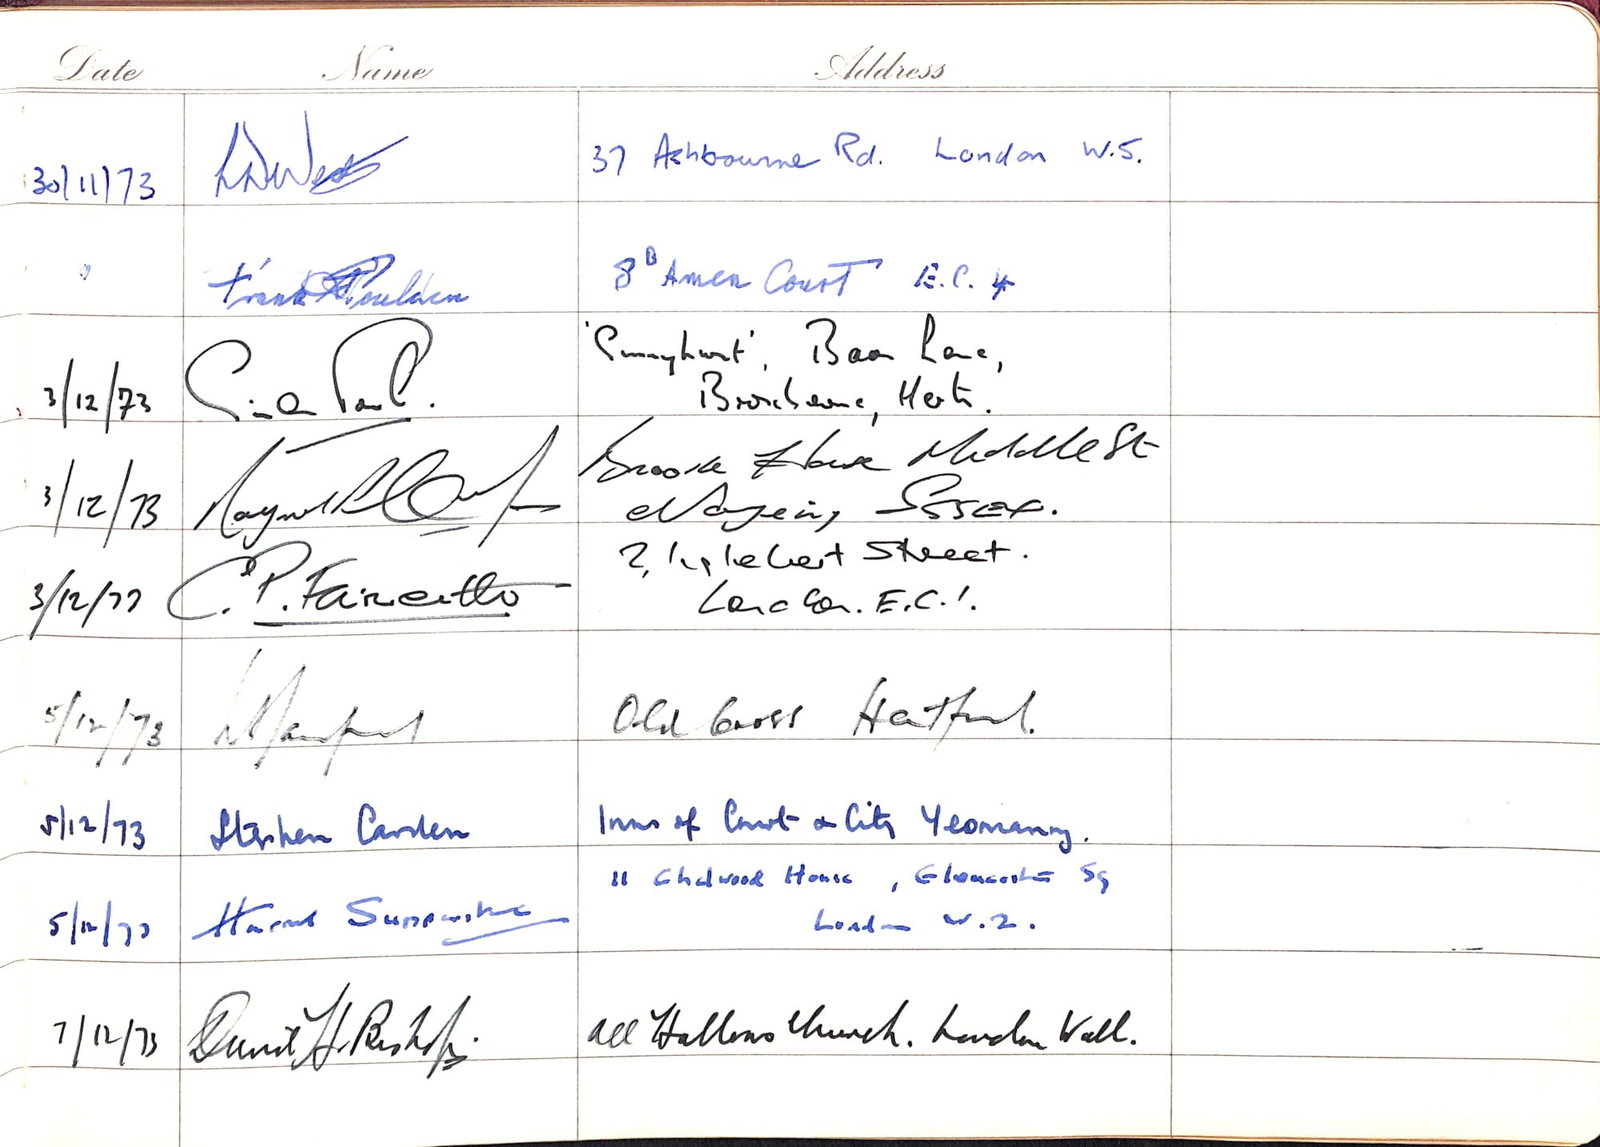 Date Name Address
30/11/73 37 Ashbourne Rd. London W.5.
" Frank 8B Amen Court E.C.4
3/12/73 'Sunnyhurst', Lane,
Broxbourne, Herts.
3/12/73 Brook House Middle St
Nazeing Essex.
3/12/73 C. P. 2, Street.
London. E.C.1.
5/12/73 Old Cross Hertford.
5/12/73 Stephen Carden Inns of Court & City Yeomanry.
11 Chelwood House, Gloucester Sq
5/12/73 London W.2.
7/12/73 David H. Bishop. All Hallows Church. London Wall.